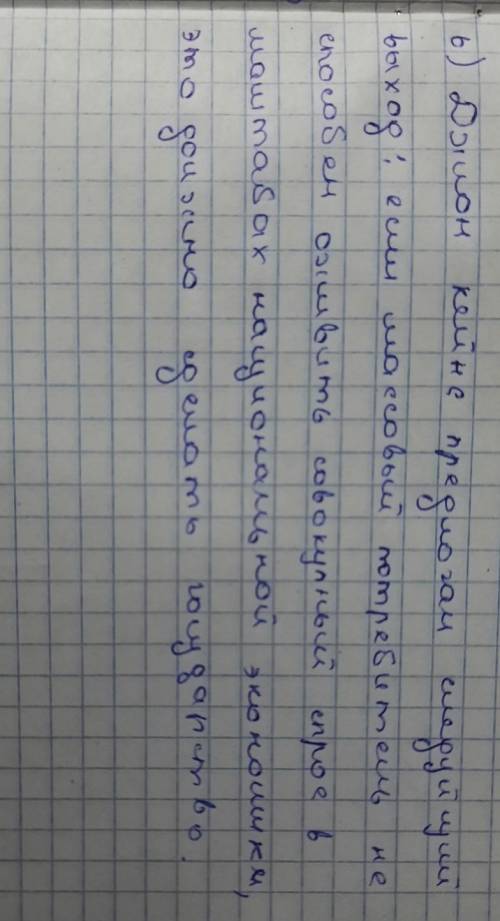 в) Джон кейнс предлогал следуйщий
выход: если массовый потребитель не
способен оживить совокупный спрос в
маштабах национальной экономики,
это должно сделать государство.